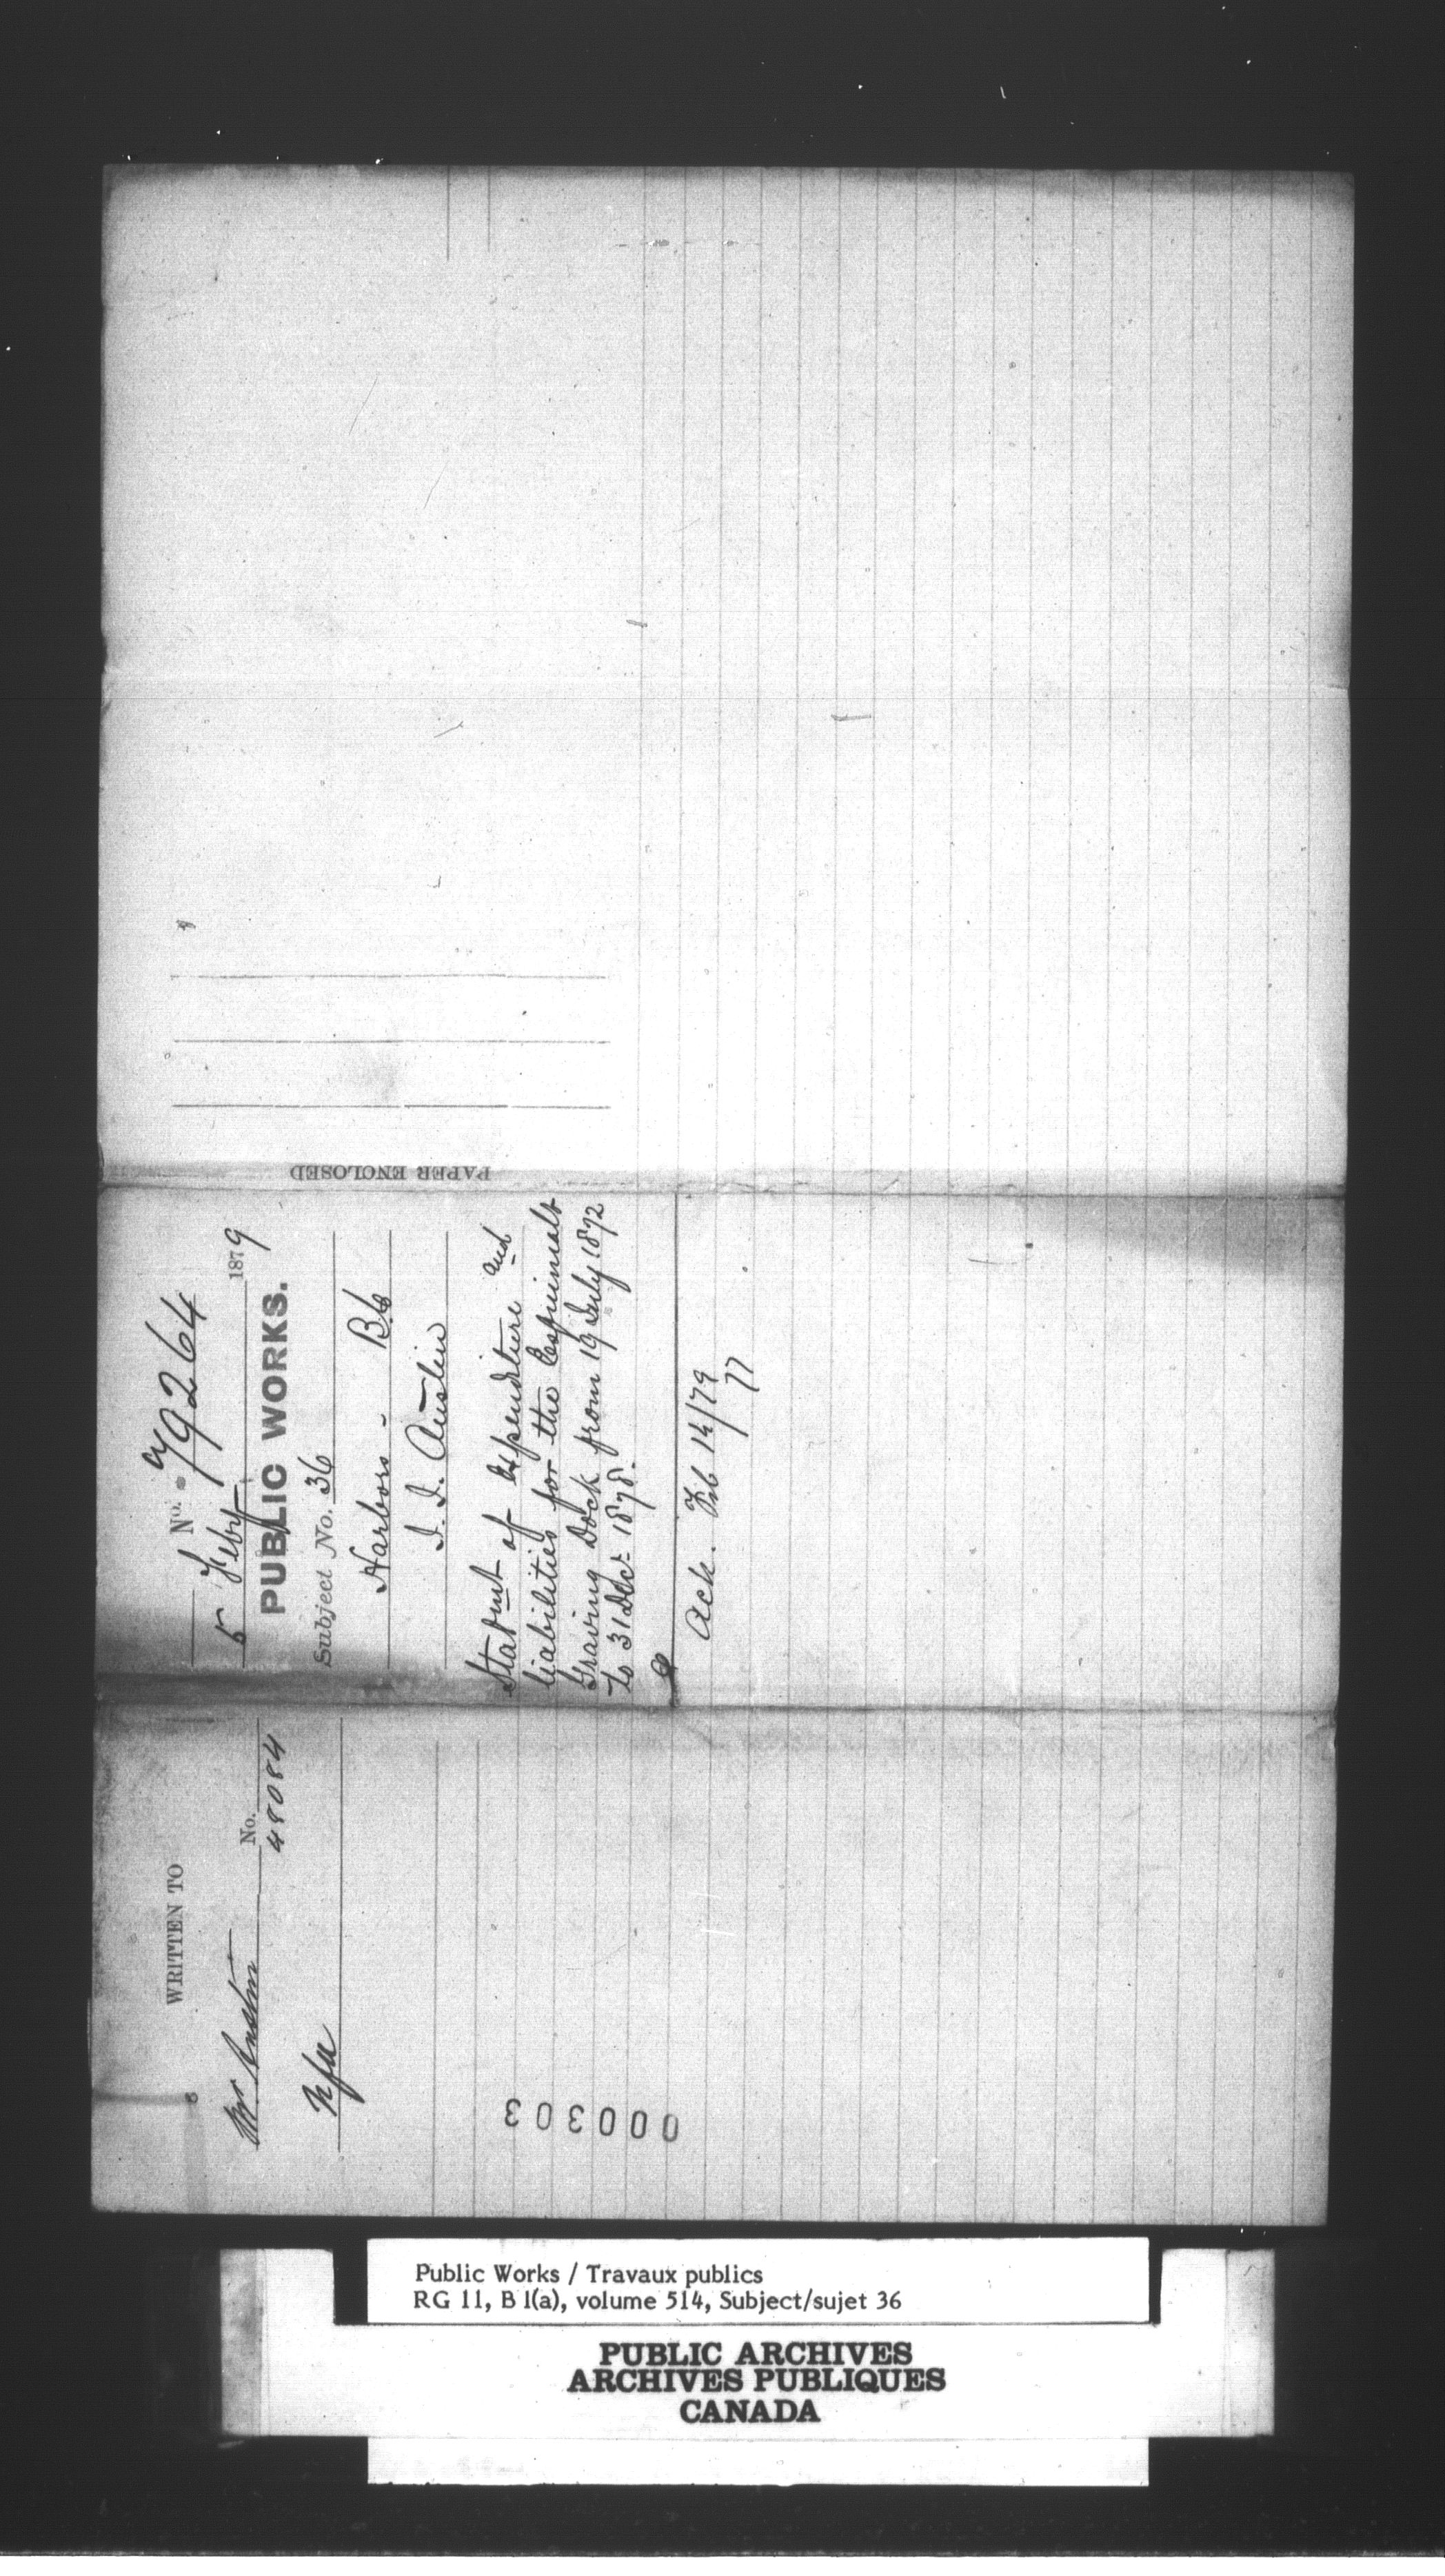 No. 79264
5 Feby 1879
PUBLIC WORKS.
Subject No. 36
Harbors - B.C
J. J. Austin
Statmt of expenditure and
liabilities for the Esquimalt
Graving Dock from 19 July 1872
to 31 Dec: 1878.
Ack. Feb 14/79
77
PAPER ENCLOSED
WRITTEN TO
No.
Mr Austin 48084
000303
Public Works / Travaux publics
RG 11, B 1(a), volume 514, Subject/sujet 36
PUBLIC ARCHIVES
ARCHIVES PUBLIQUES
CANADA